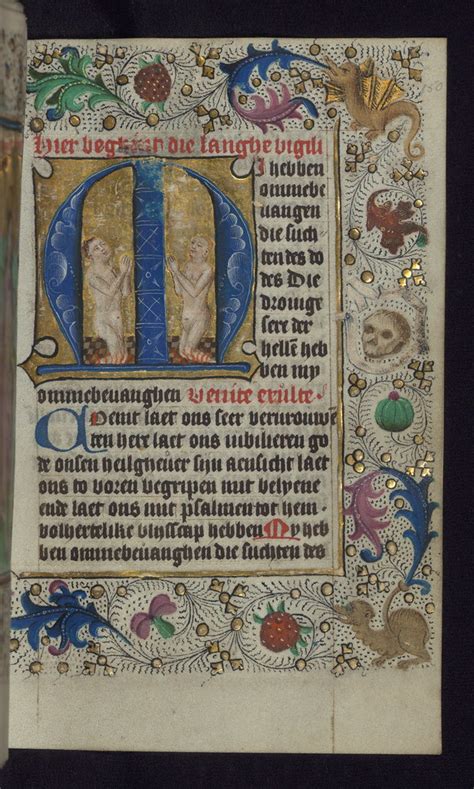 Hier beghint die langhe vigili
M
I hebben
ommebe
uangen
die such
ten des do
des Die
drouige
sere der
hellen heb
ben my
ommebeuanghen Venite exulte.
Coemt laet ons seer verurouwe
ten here laet ons iubilieren go
de onsen heilgheuer sijn aensicht laet
ons to voren begripen mit belyene
ende laet ons mit psalmen tot hem
volhertelike blysscap hebben My heb
ben ommebeuanghen die suchten des